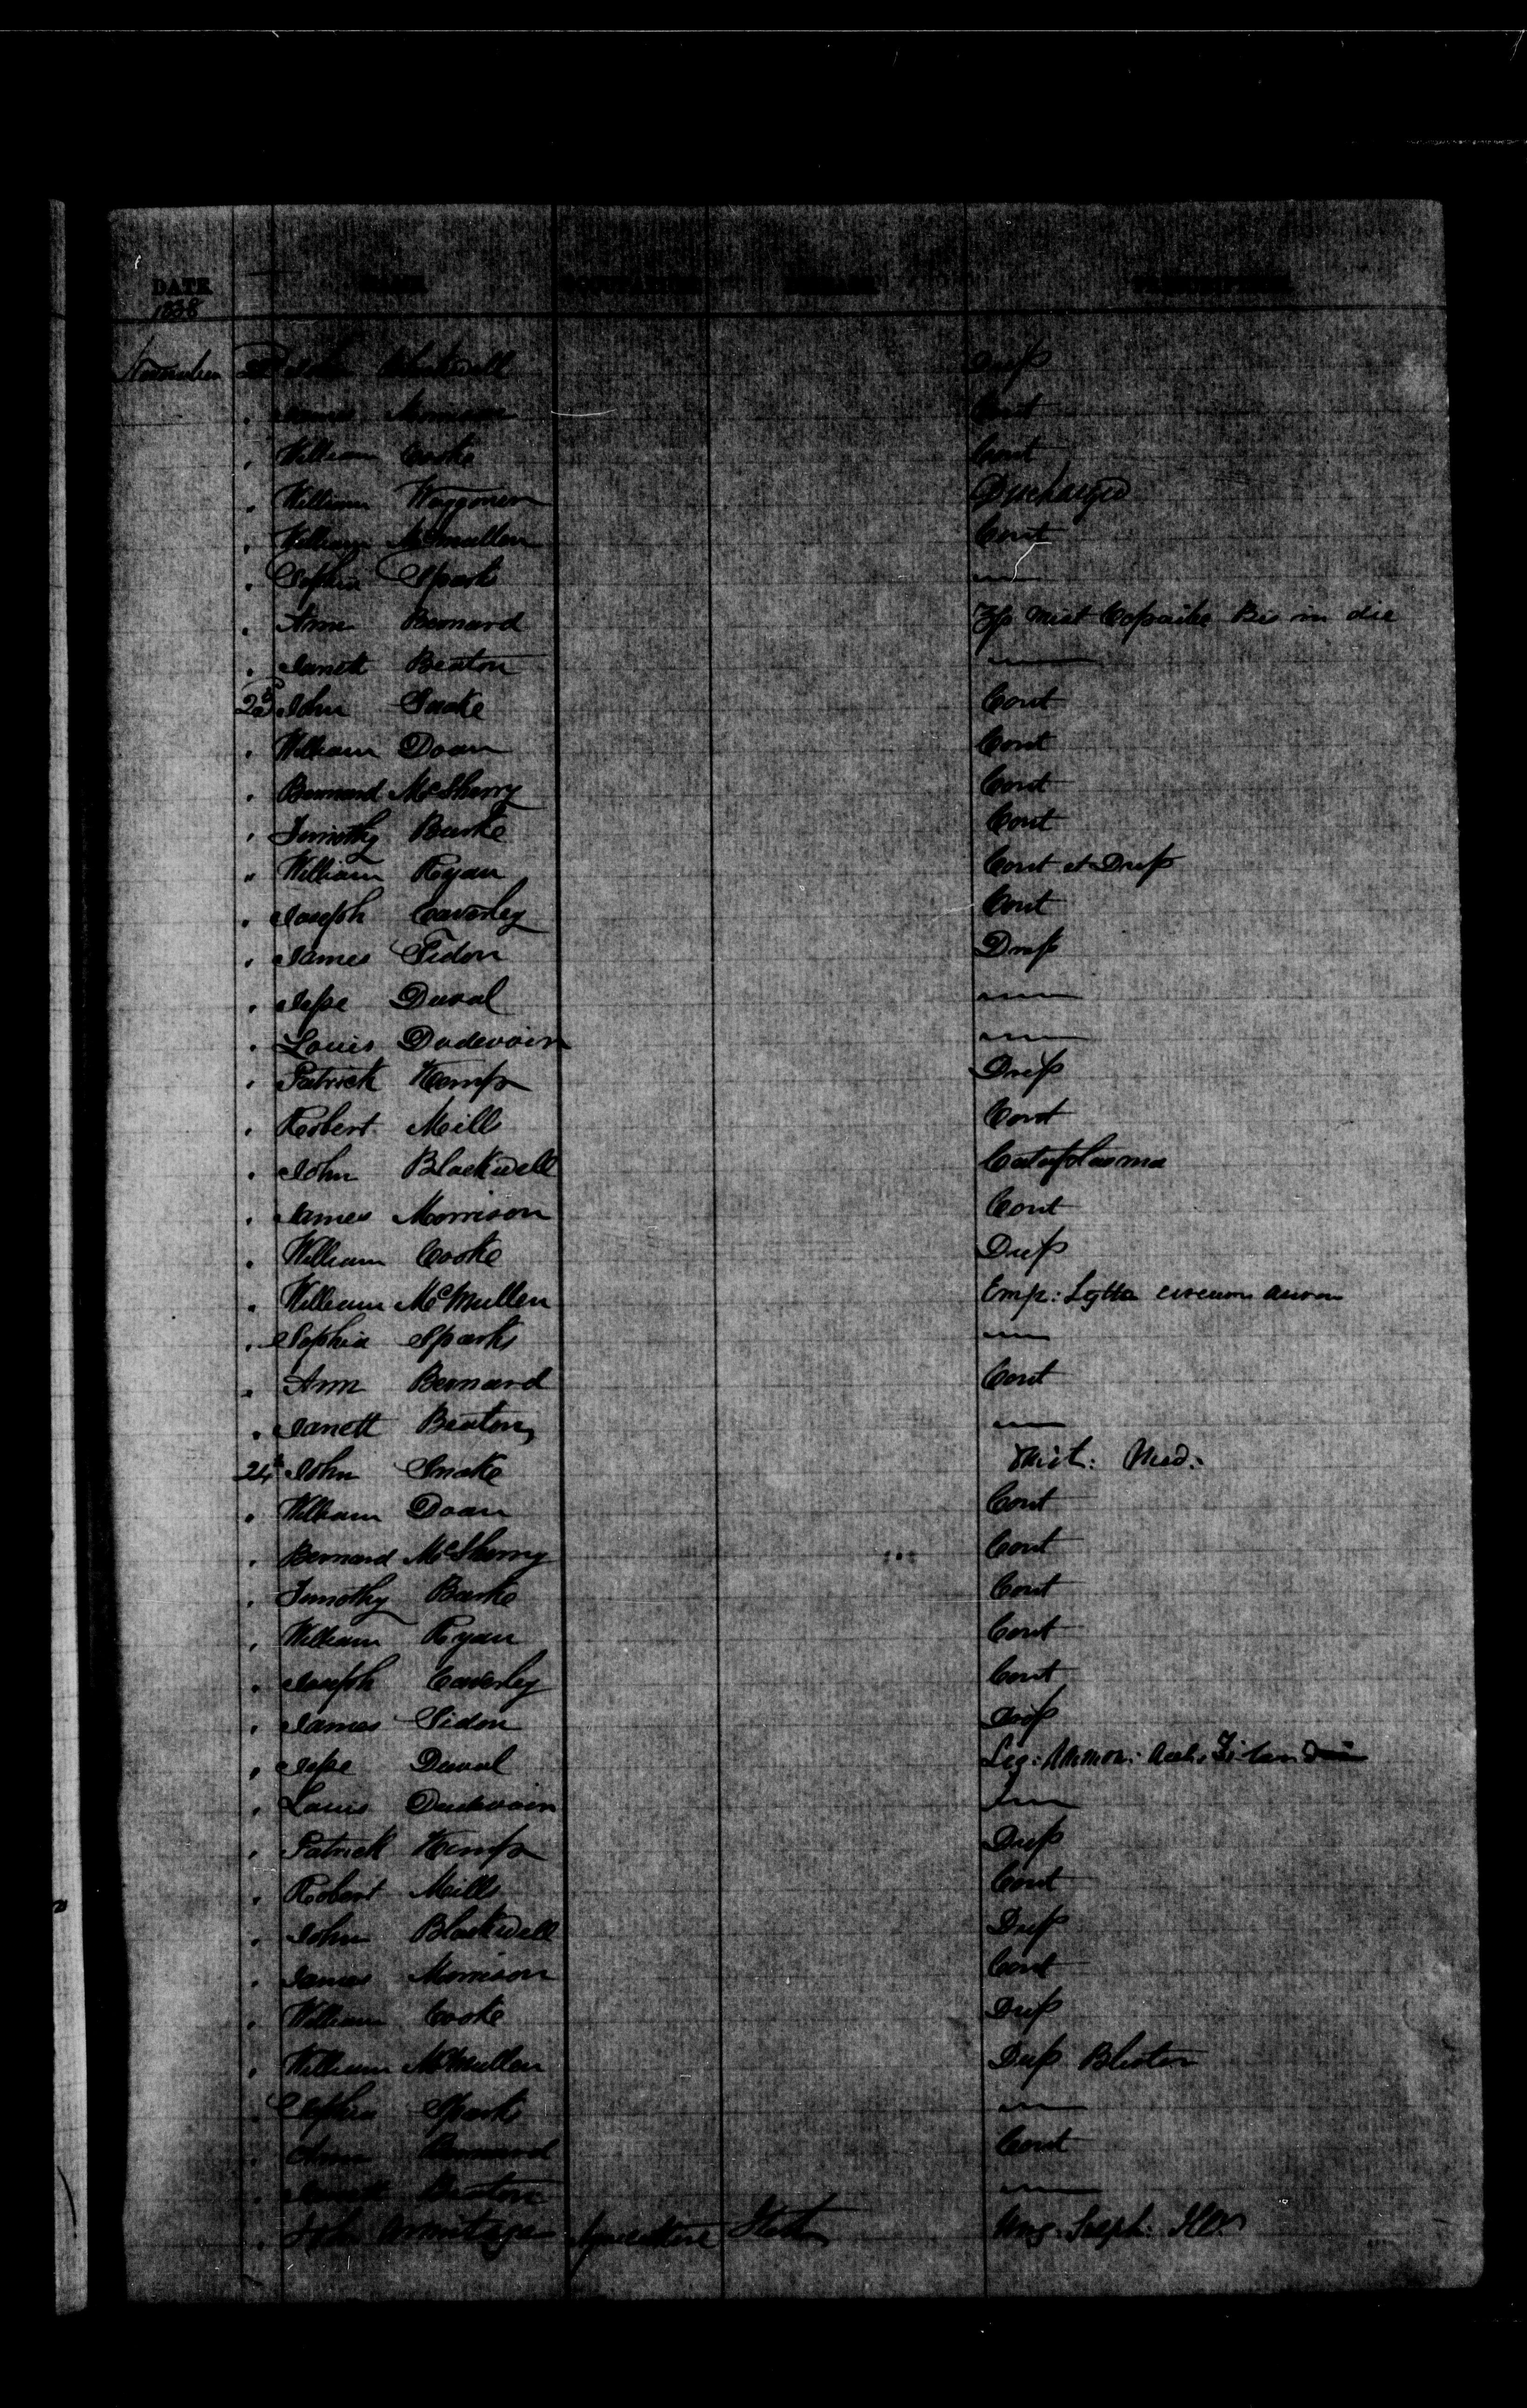 DATE NAME OCCUPATION DISEASE PRESCRIPTION
1838
November 22 John Blackwell Dress
" James Morrison Cont
" William Cooke Cont
" William Waggoner Discharged
" William McMullen Cont
" Sophia Spark —
" Ann Bernard ℥ſs Mist Copaibe Bis in die
" Janett Beaton —
23 John Snake Cont
" William Doan Cont
" Bernard McSherry Cont
" Timothy Burke Cont
" William Ryan Cont et Dress
" Joseph Caverley Cont
" James Sidon Dress
" Jesse Duval —
" Louis Dodevoin —
" Patrick Kemp Dress
" Robert Mill Cont
" John Blackwell Cataplasma
" James Morrison Cont
" William Cooke Dress
" William McMullen Emp: Lytta circum aurem
" Sophia Sparks —
" Ann Bernard Cont
" Janett Beaton —
24 John Snake Mist:
" William Doan Cont
" Bernard McSherry Cont
" Timothy Burke Cont
" William Ryan Cont
" Joseph Caverley Cont
" James Sidon Dress
" Jesse Duval Liq: Ammon: Acet:
" Louis Dudevoin —
" Patrick Kemp Dress
" Robert Mills Cont
" John Blackwell Dress
" James Morrison Cont
" William Cooke Dress
" William McMullen Dress Blister
" Sophia Sparks —
" Ann Bernard Cont
" Janett Beaton —
" John Armitage Ung: Sulph: